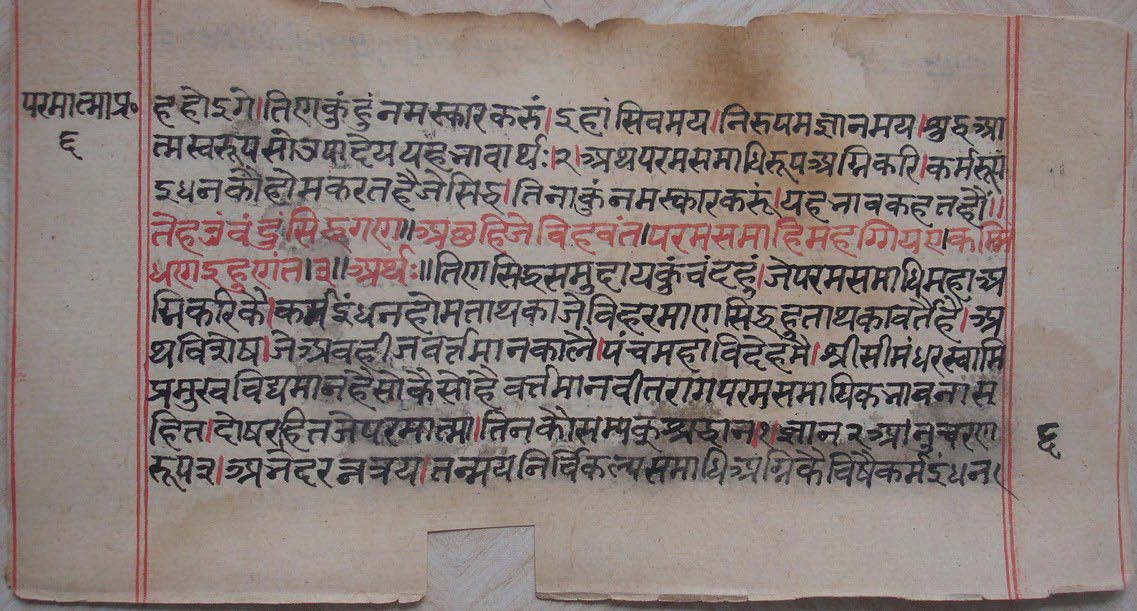 परमात्माप्र॰
६
हहोऽगे।तिणकुंहुंनमस्कारकरुं।इहांसिवमय।निरुपमज्ञानमय।शुद्धआ
त्मस्वरूपसोउपादेययहभावार्थः।२।अथपरमसमाधिरूपअग्निकरि।कर्मरूप
इंधनकौहोमकरतहैजेसिद्ध।तिनाकुंनमस्कारकरूं।यहभावकहतहौं॥
तेहउंवंदुंसिद्धगण॥अछहिजेविहवंत।परमसमाहिमहग्गियए।कम्मिं
धणइहुणंत।३॥अर्थः॥तिणसिद्धसमुदायकुंवंदहुं।जेपरमसमाधिमहाअ
ग्निकरिकै।कर्मइंधनहोमताथकाजेविहरमाणसिद्धहुताथकावर्तैहै।अ
थविशेष।जेअवहीजवर्तमानकालै।पंचमहाविदेहमै।श्रीसीमंधरस्वामि
प्रमुखविद्यमानहैसोकैसोहैवर्त्तमानवीतरागपरमसमाधिकभावनास
हित।दोषरहितजेपरमात्मा।तिनकौसम्यक्श्रद्धान१।ज्ञान२आनुचरण
रूप३।अभेदरत्नत्रय।तन्मयनिर्विकल्पसमाधिअग्निकैविषैकर्मइंधन।
६